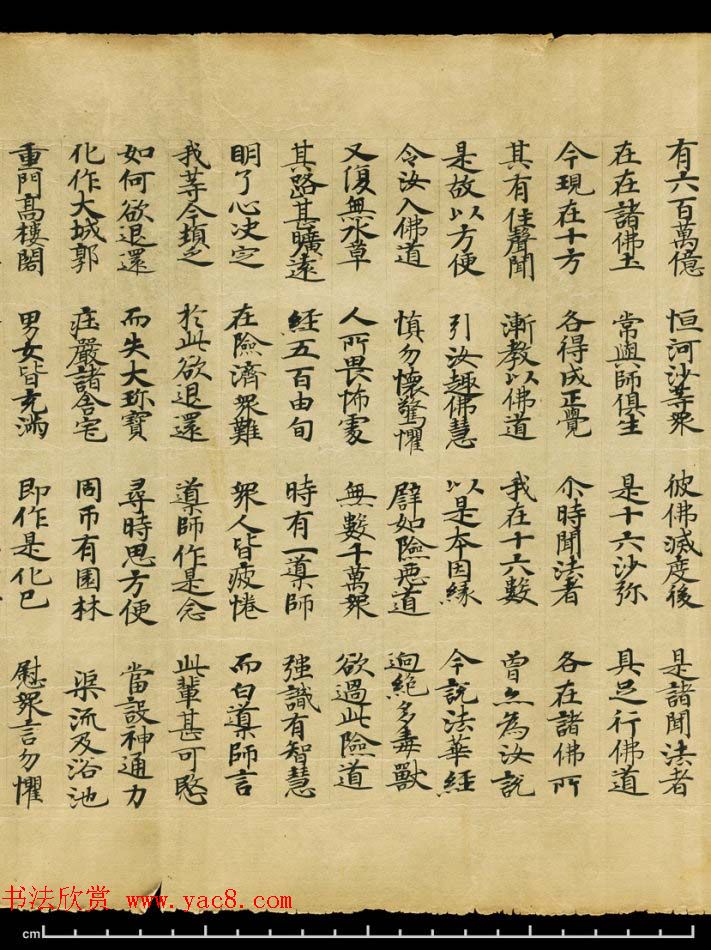 有六百萬億 恒河沙等衆 彼佛滅度後 是諸聞法者
在在諸佛土 常與師俱生 是十六沙弥 具足行佛道
今現在十方 各得成正覺 尒時聞法者 各在諸佛所
其有住聲聞 漸教以佛道 我在十六數 曾亦為汝說
是故以方便 引汝趣佛慧 以是本因緣 今說法華經
令汝入佛道 慎勿懷驚懼 譬如險惡道 迥絕多毒獸
又復無水草 人所畏怖處 無數千萬衆 欲過此險道
其路甚曠遠 經五百由旬 時有一導師 強識有智慧
明了心決定 在險濟衆難 衆人皆疲惓 而白導師言
我等今頓乏 於此欲退還 導師作是念 此輩甚可愍
如何欲退還 而失大珎寶 尋時思方便 當設神通力
化作大城郭 莊嚴諸舍宅 周帀有園林 渠流及浴池
重門高樓閣 男女皆充滿 即作是化已 慰衆言勿懼
书法欣赏 www.yac8.com
cm